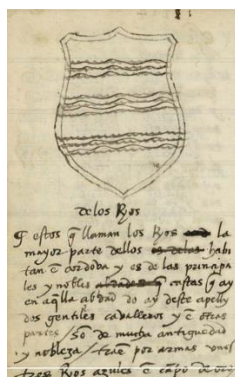 de los Rios
q estos q llaman los Rios la
mayor parte dellos habi
tan ẽ cordoba y es de las principa
les y nobles castas q ay
en aq̃lla abdad do ay deste apelly
dos gentiles cavalleros y ẽ otras
partes / so de mucha antiguedad
y nobleza / traẽ por armas unas
tres Rios azules ẽ cãpo de oro